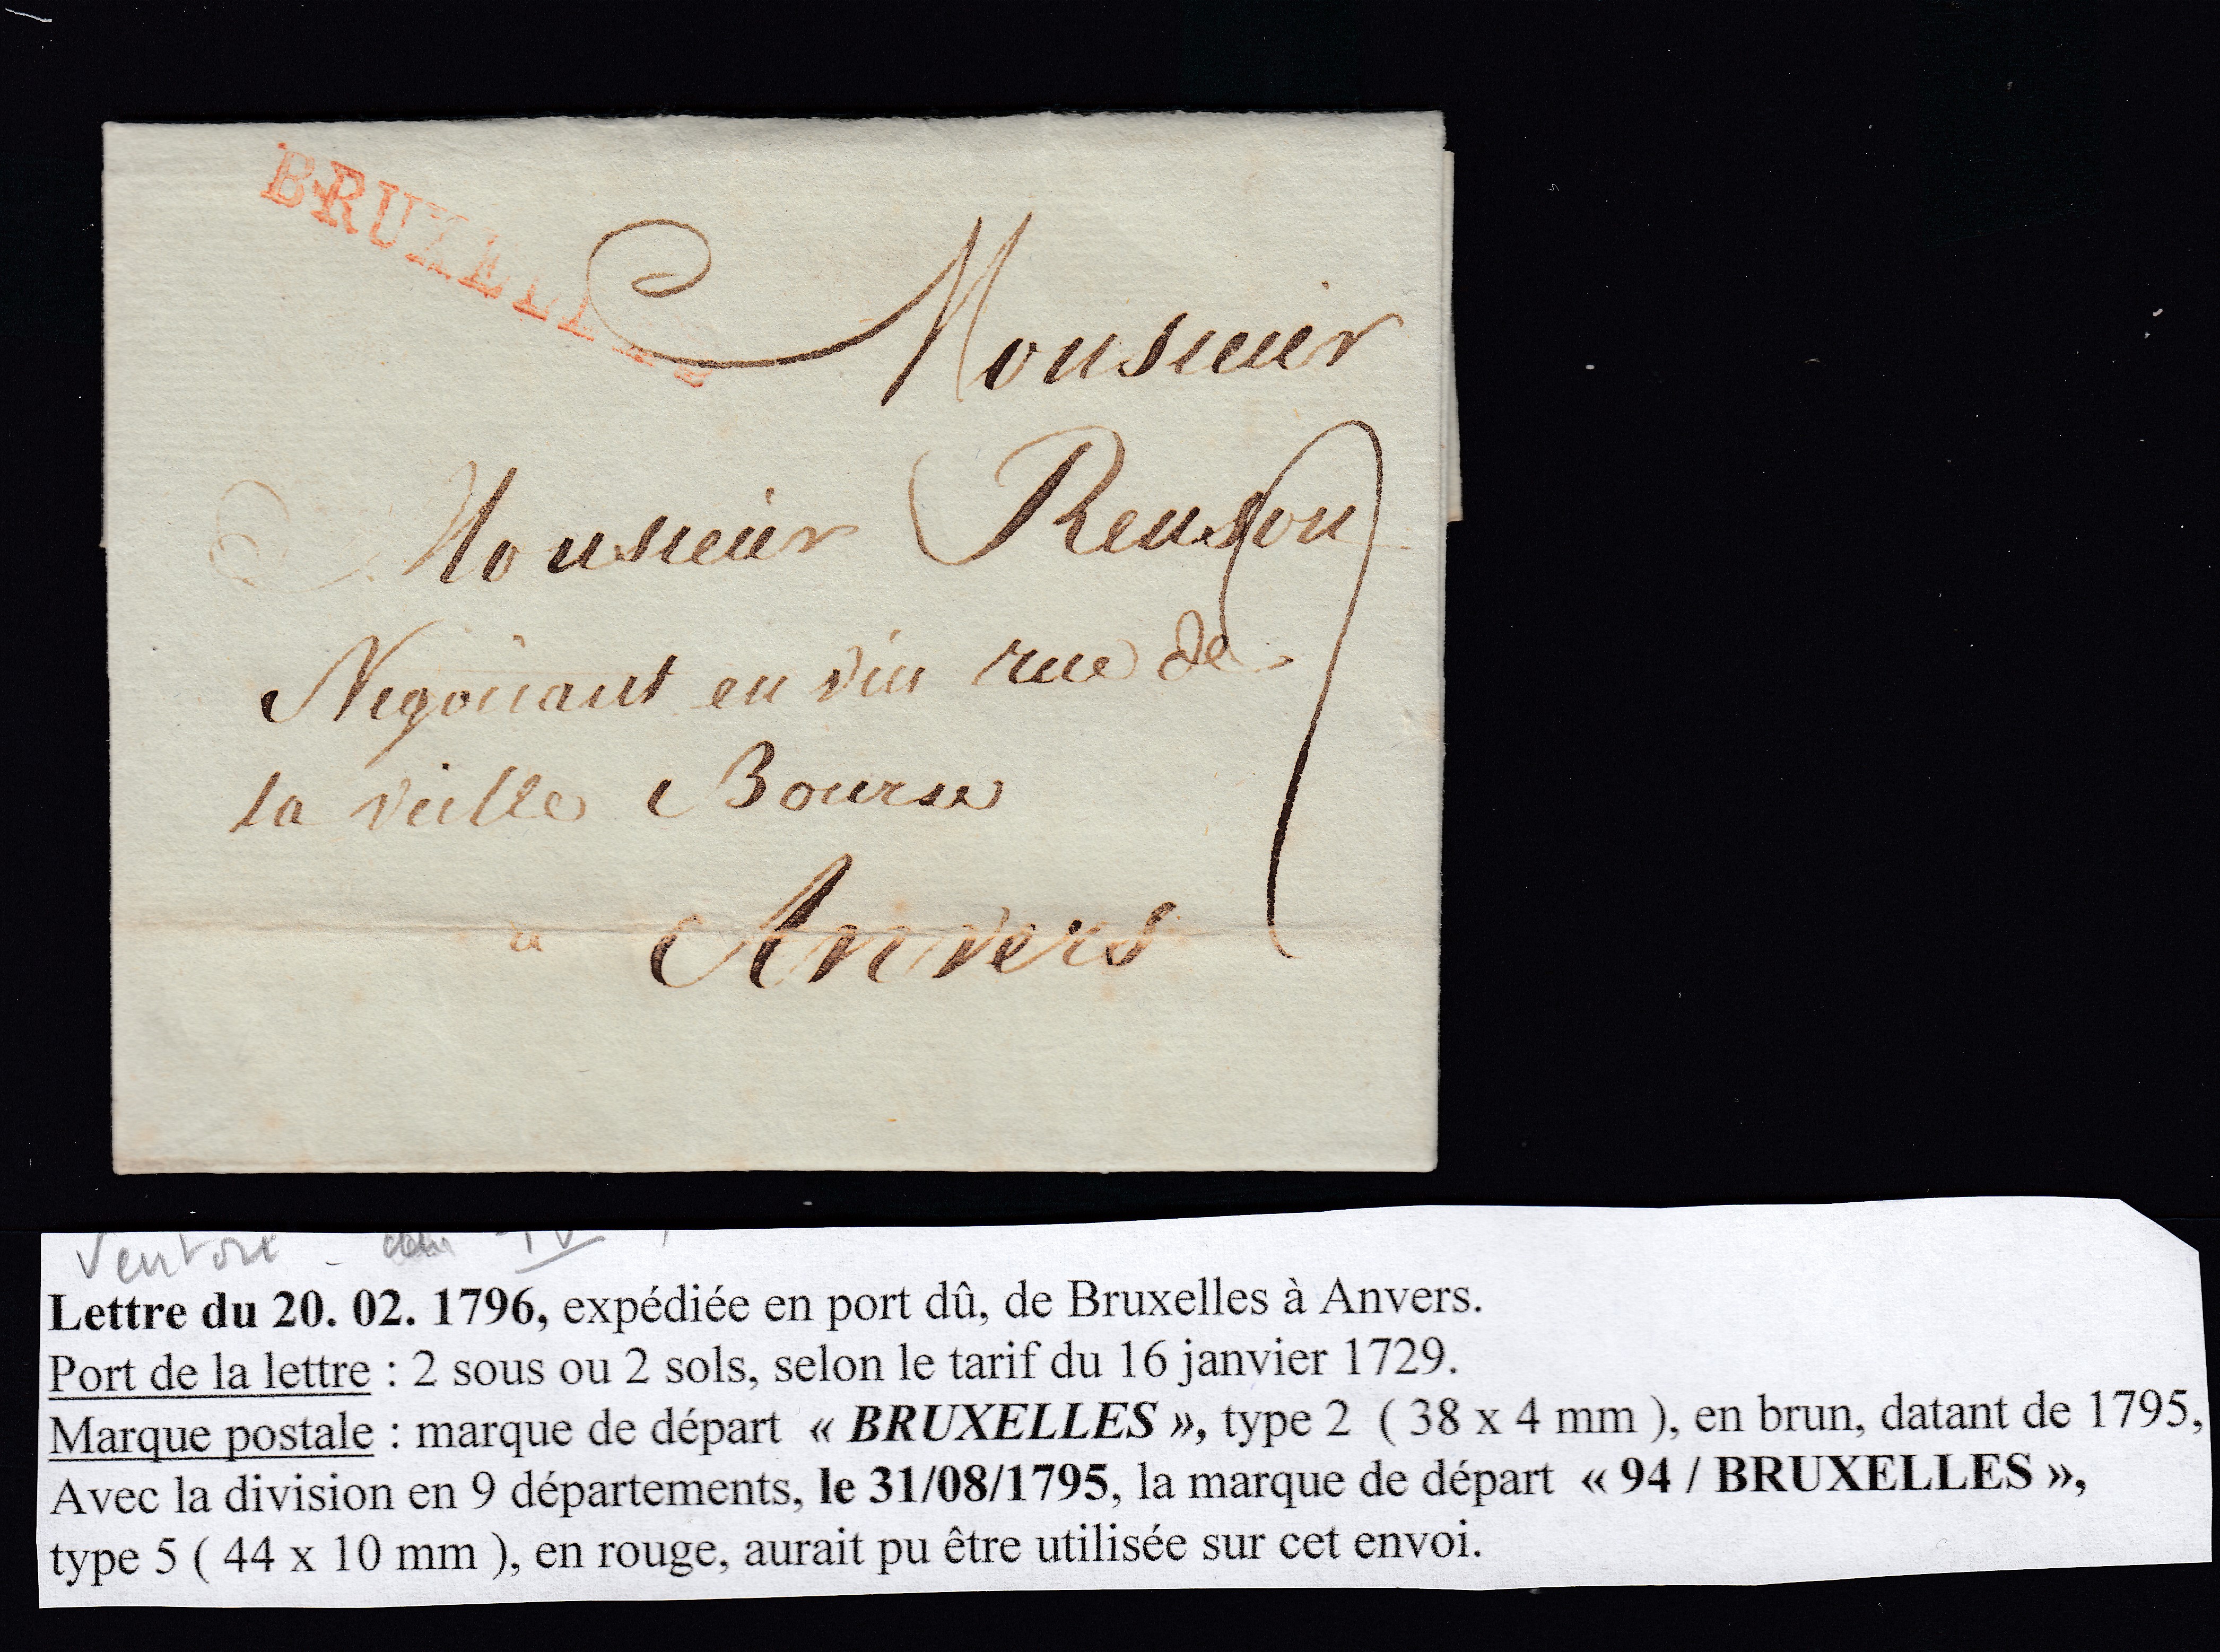 BRUXELLES
Monsieur
Monsieur Renson
Negociant en vin rue de
la vieille Bourse
a Anvers
Lettre du 20. 02. 1796, expédiée en port dû, de Bruxelles à Anvers.
Port de la lettre : 2 sous ou 2 sols, selon le tarif du 16 janvier 1729.
Marque postale : marque de départ « BRUXELLES », type 2 ( 38 x 4 mm ), en brun, datant de 1795,
Avec la division en 9 départements, le 31/08/1795, la marque de départ « 94 / BRUXELLES »,
type 5 ( 44 x 10 mm ), en rouge, aurait pu être utilisée sur cet envoi.